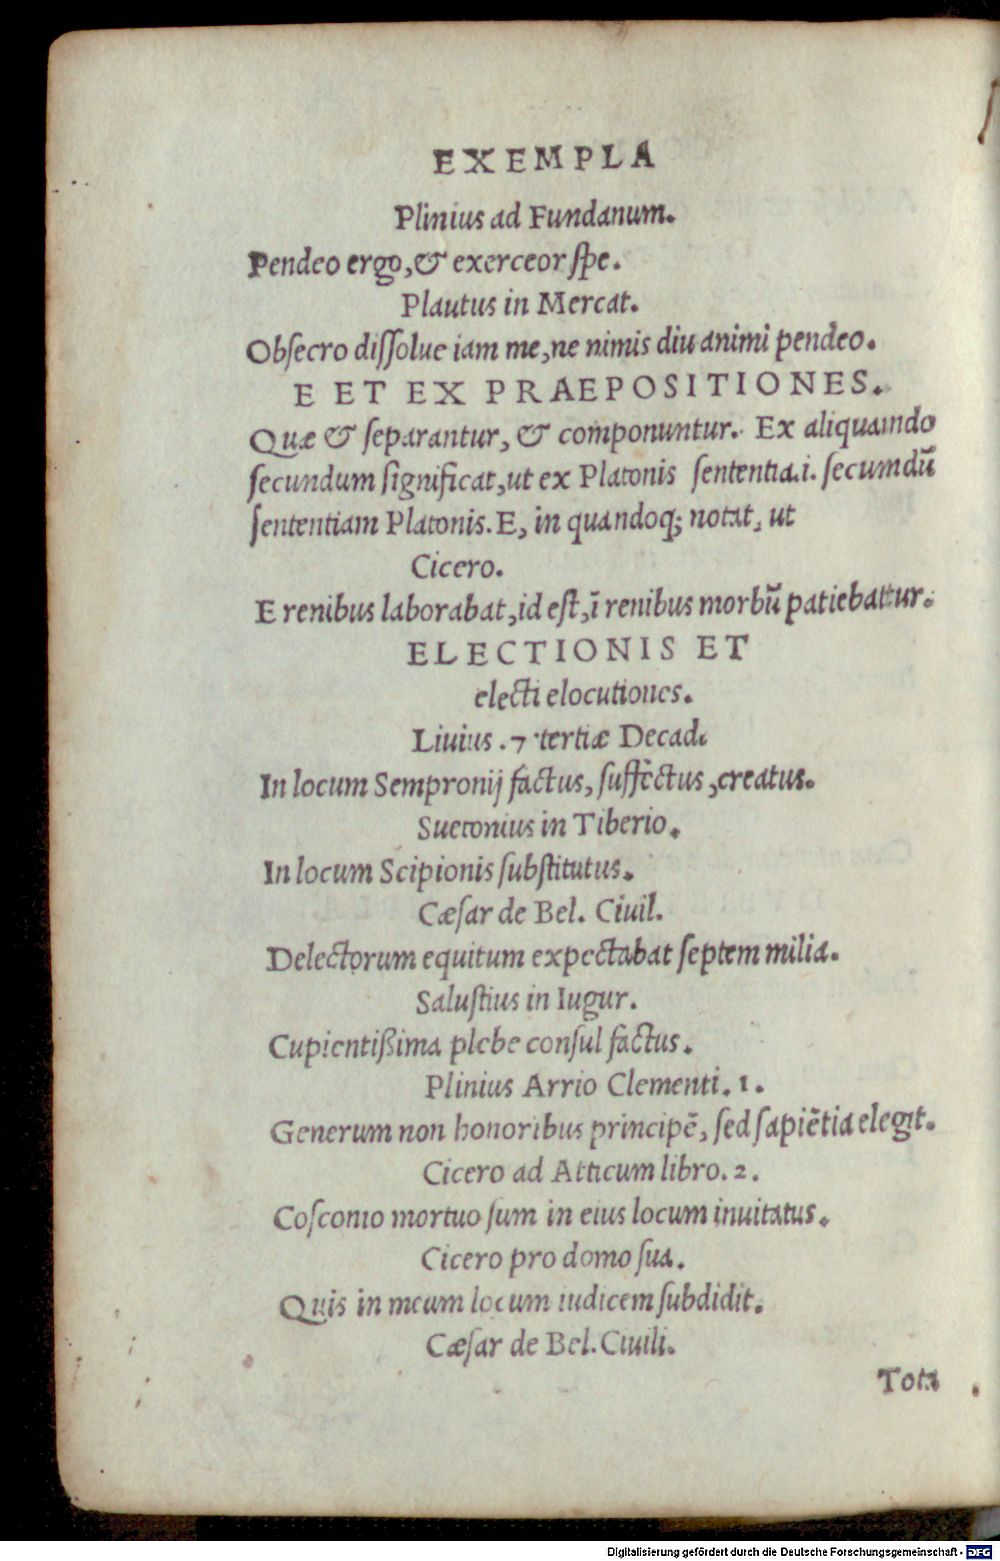 EXEMPLA
Plinius ad Fundanum.
Pendeo ergo, & exerceor ſpe.
Plautus in Mercat.
Obſecro diſſolue iam me, ne nimis diu animi pendeo.
E ET EX PRAEPOSITIONES.
Quæ & ſeparantur, & componuntur. Ex aliquando
ſecundum ſignificat, ut ex Platonis ſententia.i. ſecundũ
ſententiam Platonis. E, in quandoq; notat, ut
Cicero.
E renibus laborabat, id eſt, ĩ renibus morbũ patiebatur.
ELECTIONIS ET
electi elocutiones.
Liuius .7 tertiæ Decad.
In locum Sempronij factus, ſuffectus, creatus.
Suetonius in Tiberio.
In locum Scipionis ſubſtitutus.
Cæſar de Bel. Ciuil.
Delectorum equitum expectabat ſeptem milia.
Saluſtius in Iugur.
Cupientißima plebe conſul factus.
Plinius Arrio Clementi. 1.
Generum non honoribus principẽ, ſed ſapiẽtia elegit.
Cicero ad Atticum libro. 2.
Coſconio mortuo ſum in eius locum inuitatus.
Cicero pro domo ſua.
Quis in meum locum iudicem ſubdidit.
Cæſar de Bel. Ciuili.
Tota
Digitalisierung gefördert durch die Deutsche Forschungsgemeinschaft - DFG